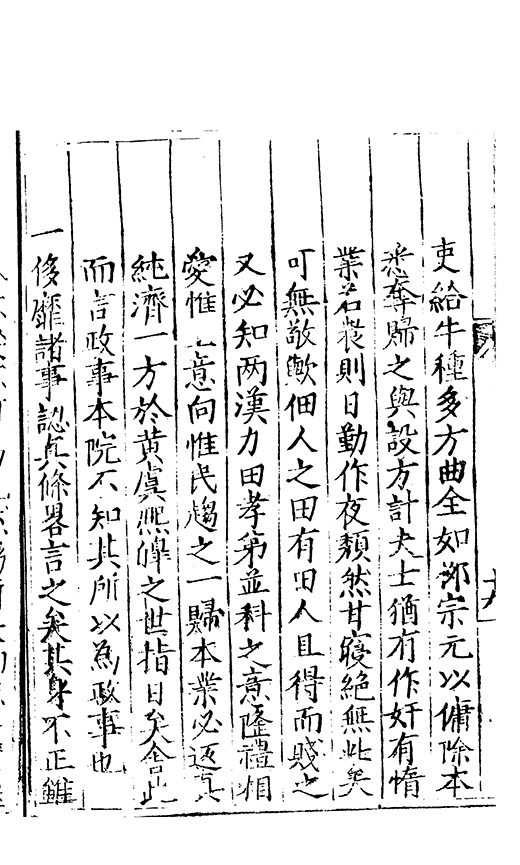 吏給牛種多方曲全如柳宗元以傭除本
悉奪歸之與設方計夫士猶有作奸有惰
業若農則日勤作夜頽然甘寢絕無此矣
叮無敢歟佃人之田有田人且得而賤之
又必知两漢力田孝苐並科之意隆禮相
愛惟上意向惟民趨之一歸本業必返真
純濟一方於黄虞熈皥之世指日矣舎此
而言政事本院不知其所以為政事也
一侈靡諸事認真條畧言之矣其身不正雖